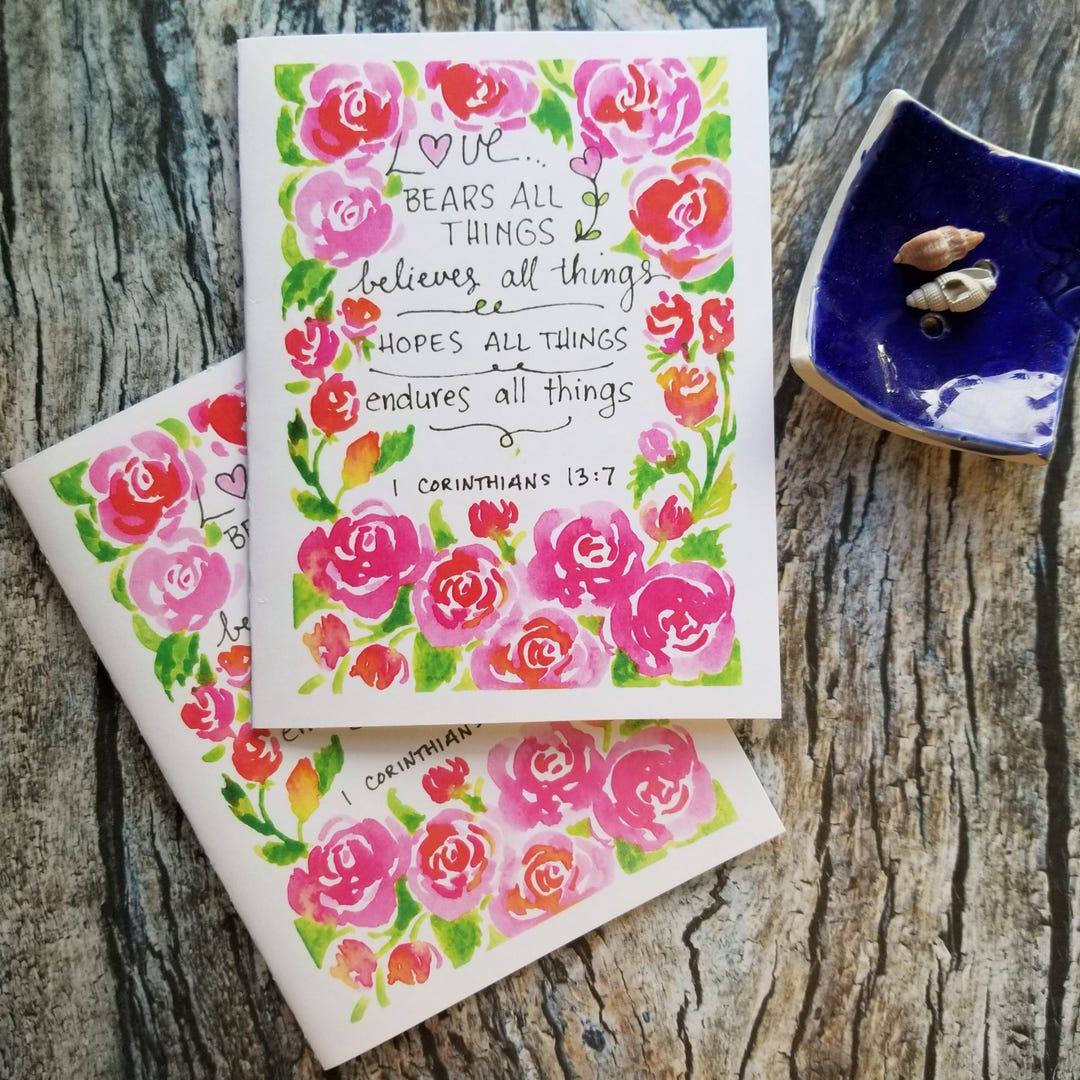 Love...
BEARS ALL
THINGS
believes all things
HOPES ALL THINGS
endures all things
1 CORINTHIANS 13:7
1 CORINTHIANS